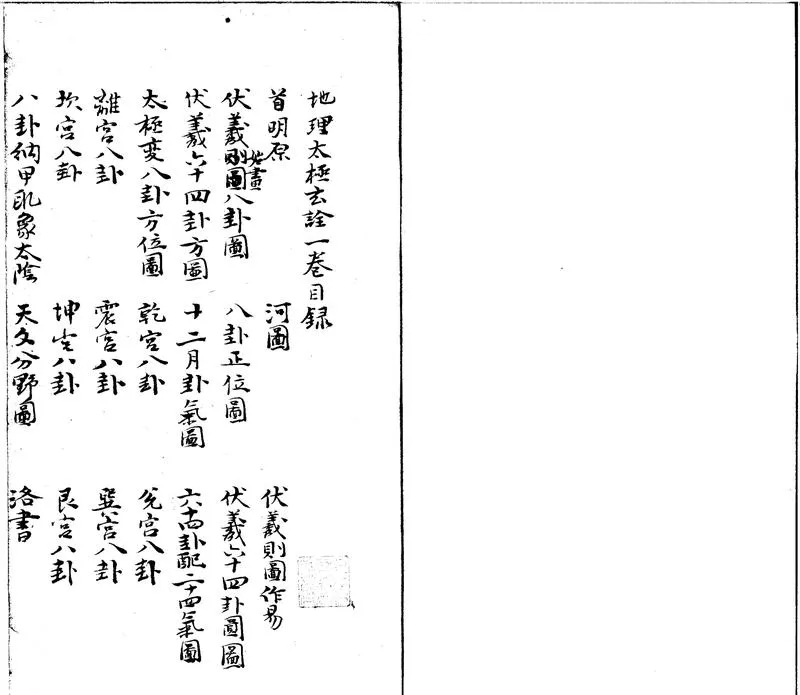 地理太極玄詮一巻目録
首明原 河圖 伏羲則圖作易
伏羲則圖始畫八卦圖 八卦正位圖 伏羲六十四卦圓圖
伏羲六十四卦方圖 十二月卦氣圖 六十四卦配二十四氣圖
太極变八卦方位圖 乾宮八卦 兊宮八卦
離宮八卦 震宮八卦 巽宮八卦
坎宮八卦 坤宮八卦 艮宮八卦
八卦納甲取象太陰 天文分野圖 洛書